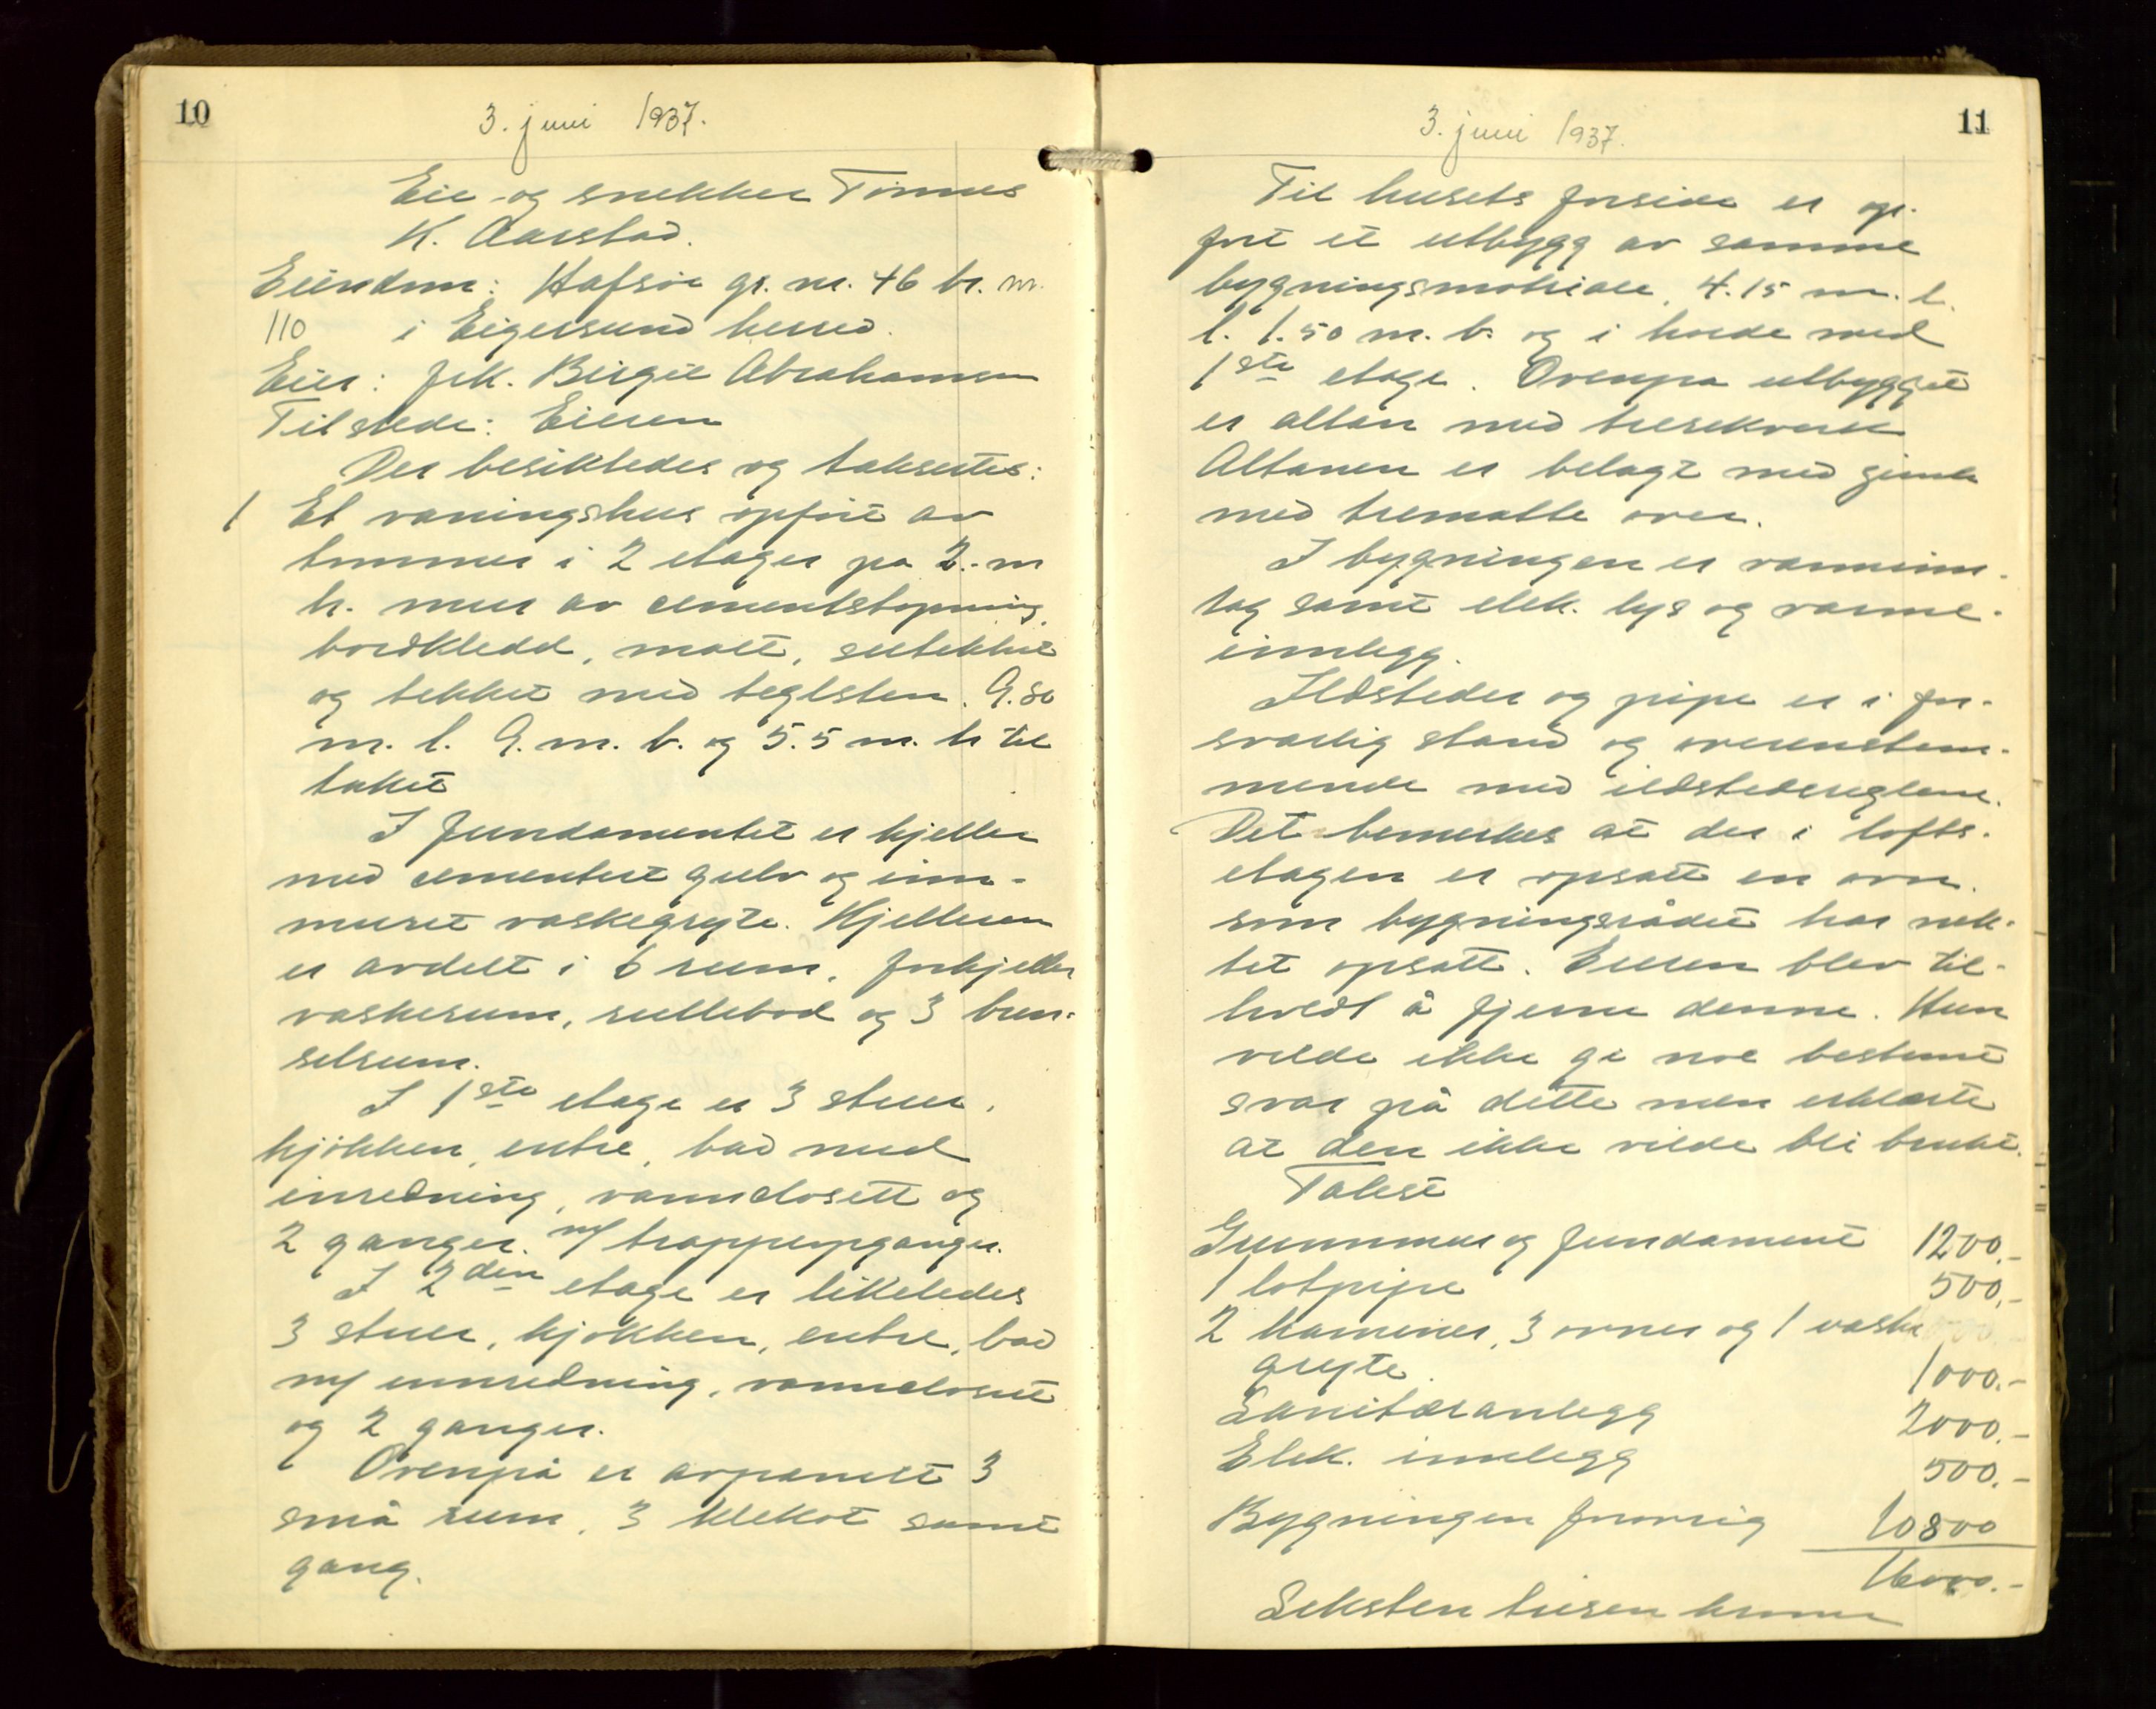 10
3. juni 1937.
Eie og snekker Tønnes
K. Aarstad.
Eiendom: Hafsøe gr. nr. 46 br. nr.
110 i Eigersund herred.
Eier: frk. Birgit Abrahamsen
Tilstede: Eieren
Der besiktedes og taksertes:
1 Et vaningshus opført av
tømmer i 2 etager pa 2. m
h. mur av cementstøpning,
bordkledd, malt, sutekket
og tekket med teglsten. 9.80
m. l. 9. m. b. og 5.5 m. h til
taket
I fundamentet er kjeller
med cementert gulv og inn-
muret vaskegryte. Kjelleren
er avdelt i 6 rum, forkjeller
vaskerum, rullebod og 3 bren-
selrum.
I 1ste etage er 3 stuer,
kjøkken, entre, bad med
inredning, vannclosett og
2 ganger. m/ trappeopganger.
I 2den etage er likeledes
3 stuer, kjøkken, entre, bad
m/ innredning, vanncloset
og 2 ganger.
Ovenpå er avpanelt 3
små rum, 3 klekot samt
gang.
11
3. juni 1937.
Til husets forside er op-
ført et utbygg av samme
bygningsmatriale, 4.15 m. l.
l. 1.50 m. b. og i høide med
1ste etage. Ovenpa utbygget
er altan med trerekverk
Altanen er belagt med
med trematte over.
I bygningen er vanninn-
tag samt elek. lys og varme-
innlegg.
Ildsteder og pipe er i for-
svarlig stand og overenstem-
mende med ildstedsreglene.
Det bemerkes at der i lofts-
etagen er opsatt en ovn
som bygningsrådet har nek-
tet opsatt. Eieren blev til-
holdt å fjerne denne. Hun
vilde ikke gi noe bestemt
svar på dette men erklærte
at den ikke vilde bli brukt.
Takst
Grunnmur og fundament 1200.-
1 løtpipe 500.-
2 kaminer, 3 ovner og 1 vaske
gryte 1000.-
Sanitæranlegg 2000.-
Elek. innlegg 500.-
Bygningen forøvrig 10800
16000.-
Seksten tusen kroner